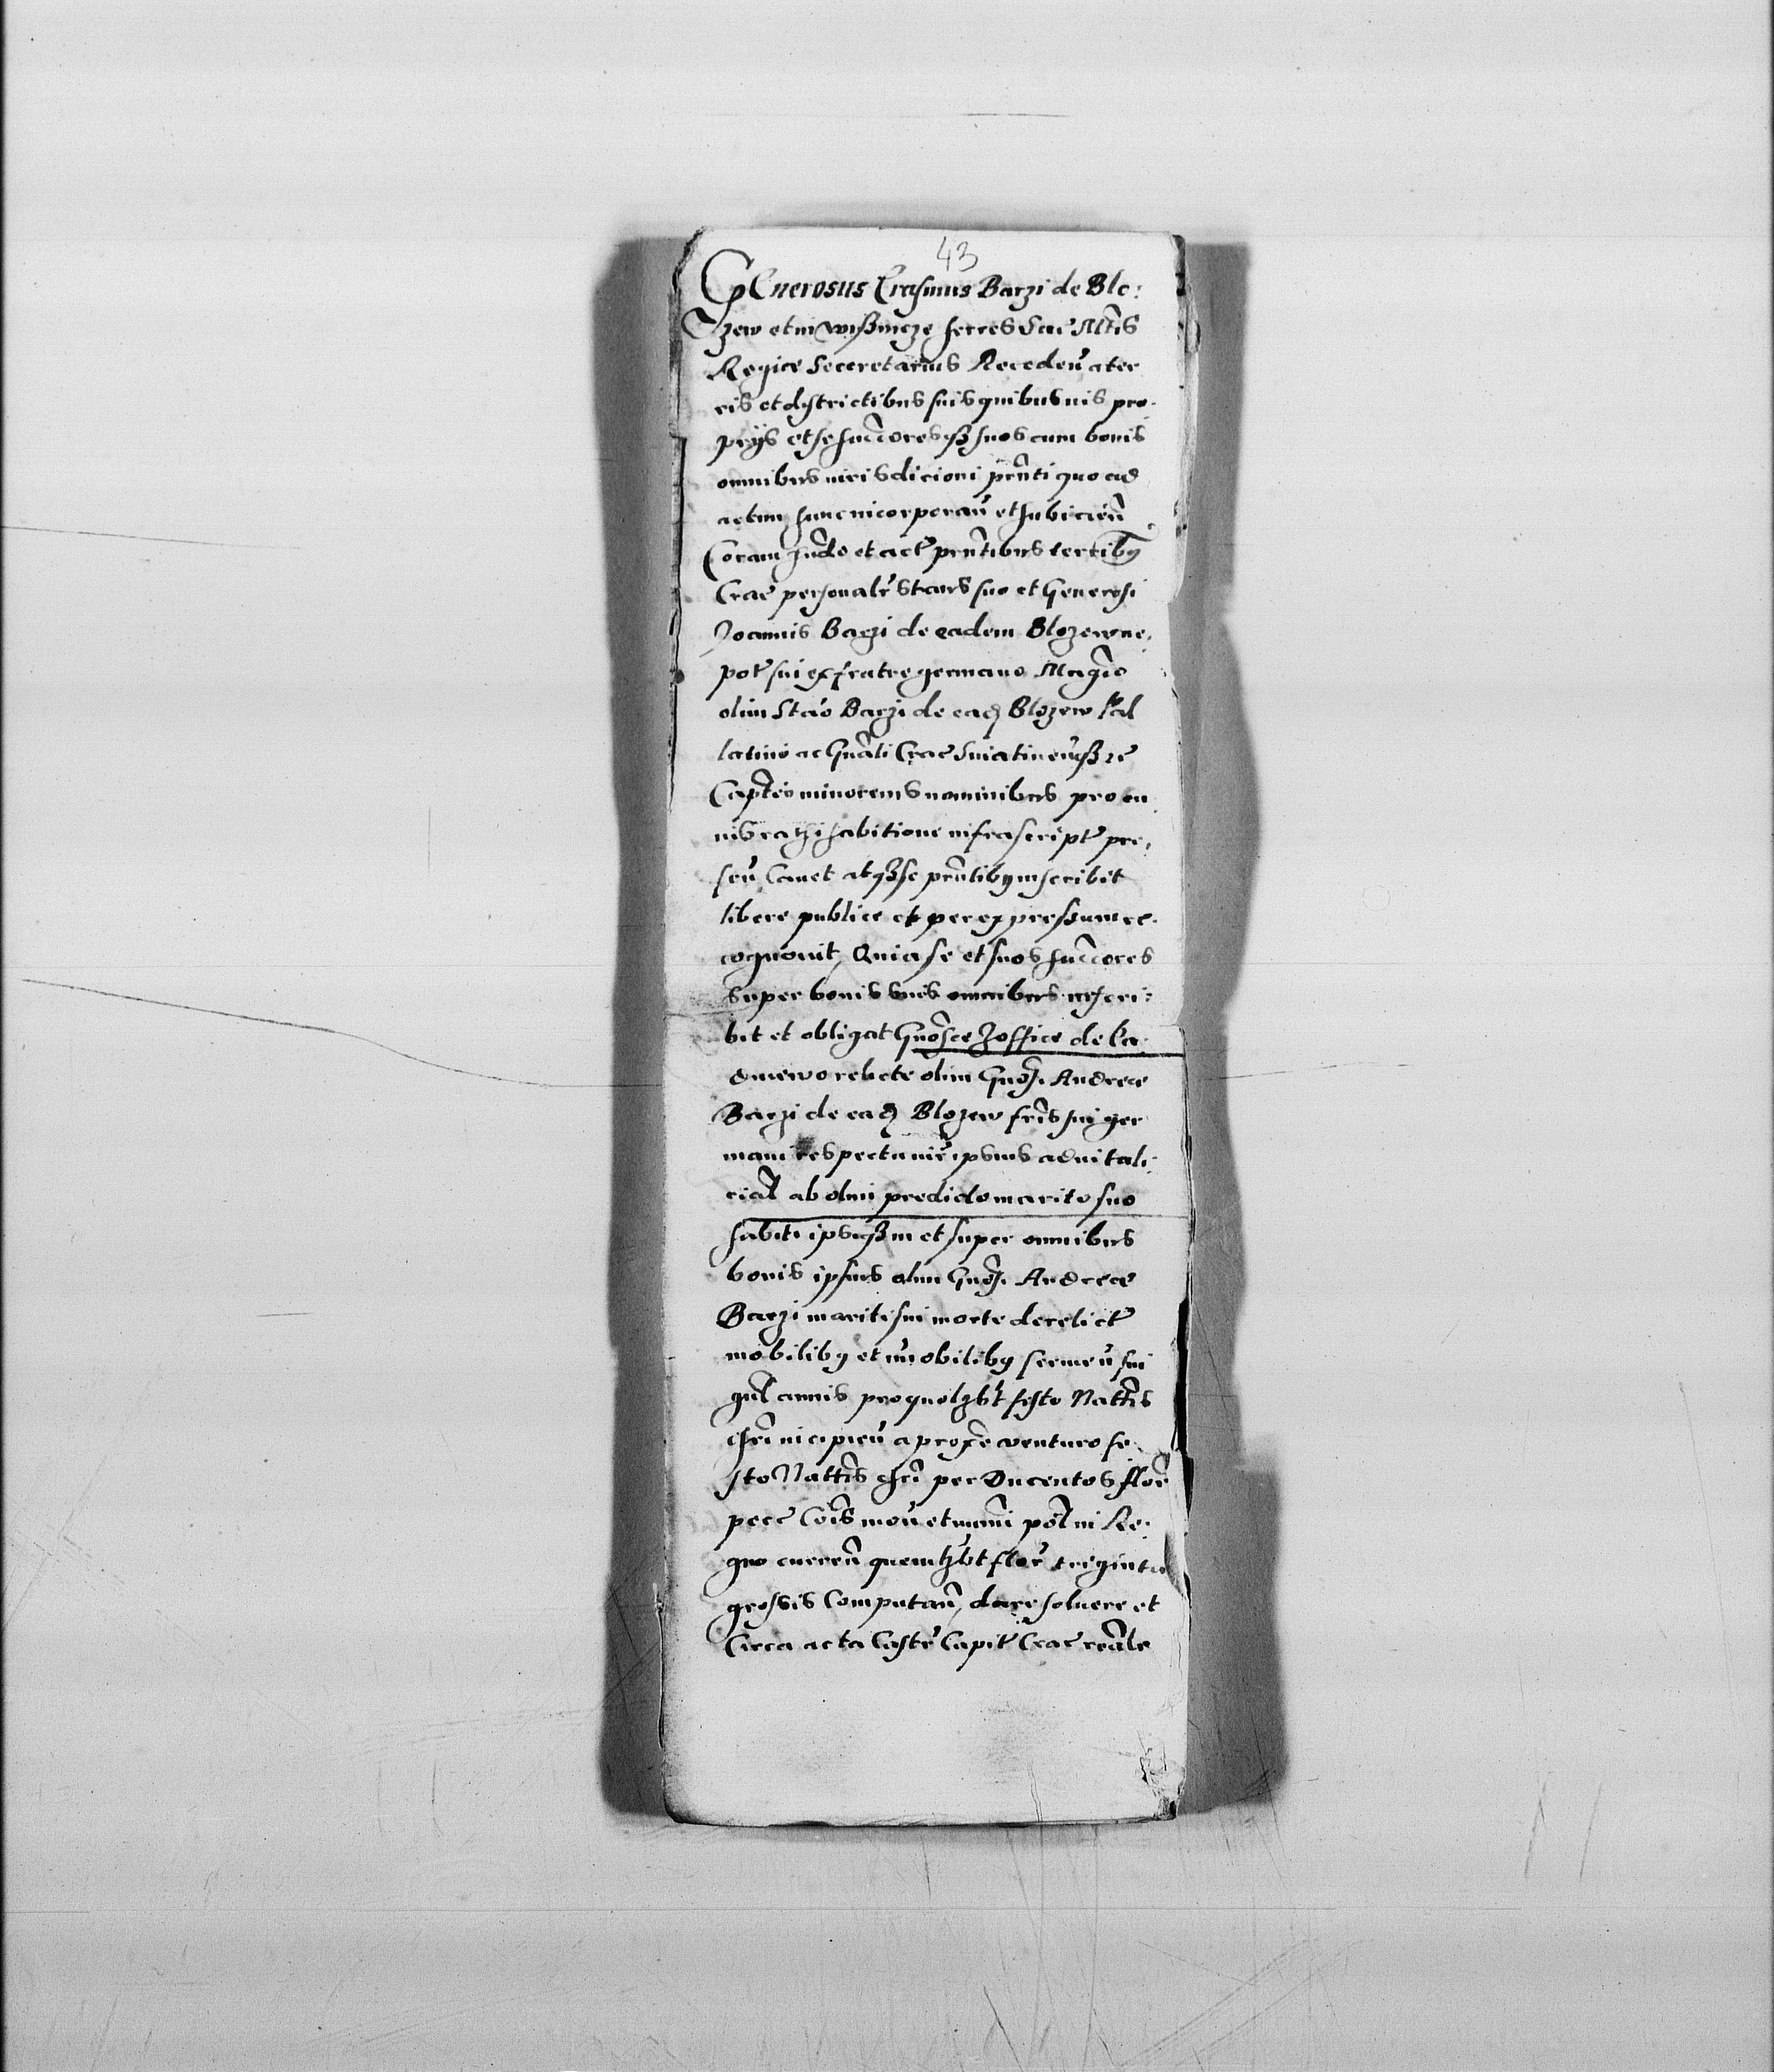 43
Generosus Erasmus Barzi de Blo:
zew et in Wisznicze heres Sac Mtis
Regiae Secretarius Receden a ter
ris et districtibus suis quibusuis pro-
prijs et se successoresqs suos cum bonis
omnibus iurisdicioni pnti quo ad
actum hunc incorporan et subicien
Coram Judo et act pntibus terribus
Crac personalr stans suo et Generosi
Joannis Barzi de eadem Blozew ne.
pot sui ex fratre germano Magco
olim Stao Barzi de ead Blozew Pal
latino ac Gnali Crac Sniatinen qs zc
Capteo minorenis nominibus pro cu
ius rathihabitione infrascript pre.
sen Cauet atqs se pntibus inscribit
libere publice et per expressum re.
cognouit, Quia se et suos succores
super bonis suis omnibus inscri:
bit et obligat Gnosce Zoffiae de La.
dmewo relicte olim Gnosi Andreae
Barzi de ead Blozew fris sui ger
mani respectu iur ipsius aduitali:
cial ab olim predicto marito suo
habiti ipsiqs in et super omnibus
bonis ipsius olim Gnosi Andreae
Barzi mariti sui morte derelict
mobilibus et immobilibus sermen sui
gul annis pro quolzbt festo Nattis
Chri incipien a proxe venturo fe.
sto Nattis Chri per Ducentos flor
pecc Cois mon et numi pol in Re.
gno curren quemlzbt flor triginta
grossis computan, dare soluere et
Circa acta Castr Capit Crac reale